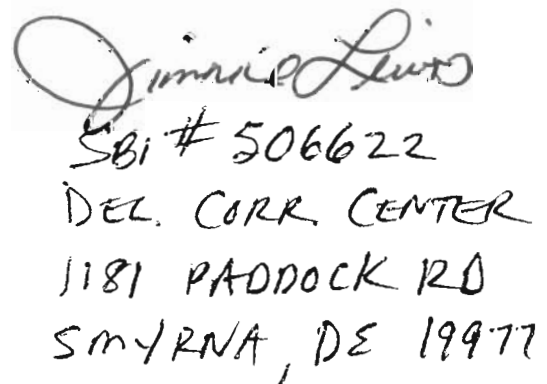 Jimmie Lewis
SBi # 506622
DEL. CORR. CENTER
1181 PADDOCK RD
SMYRNA, DE 19977